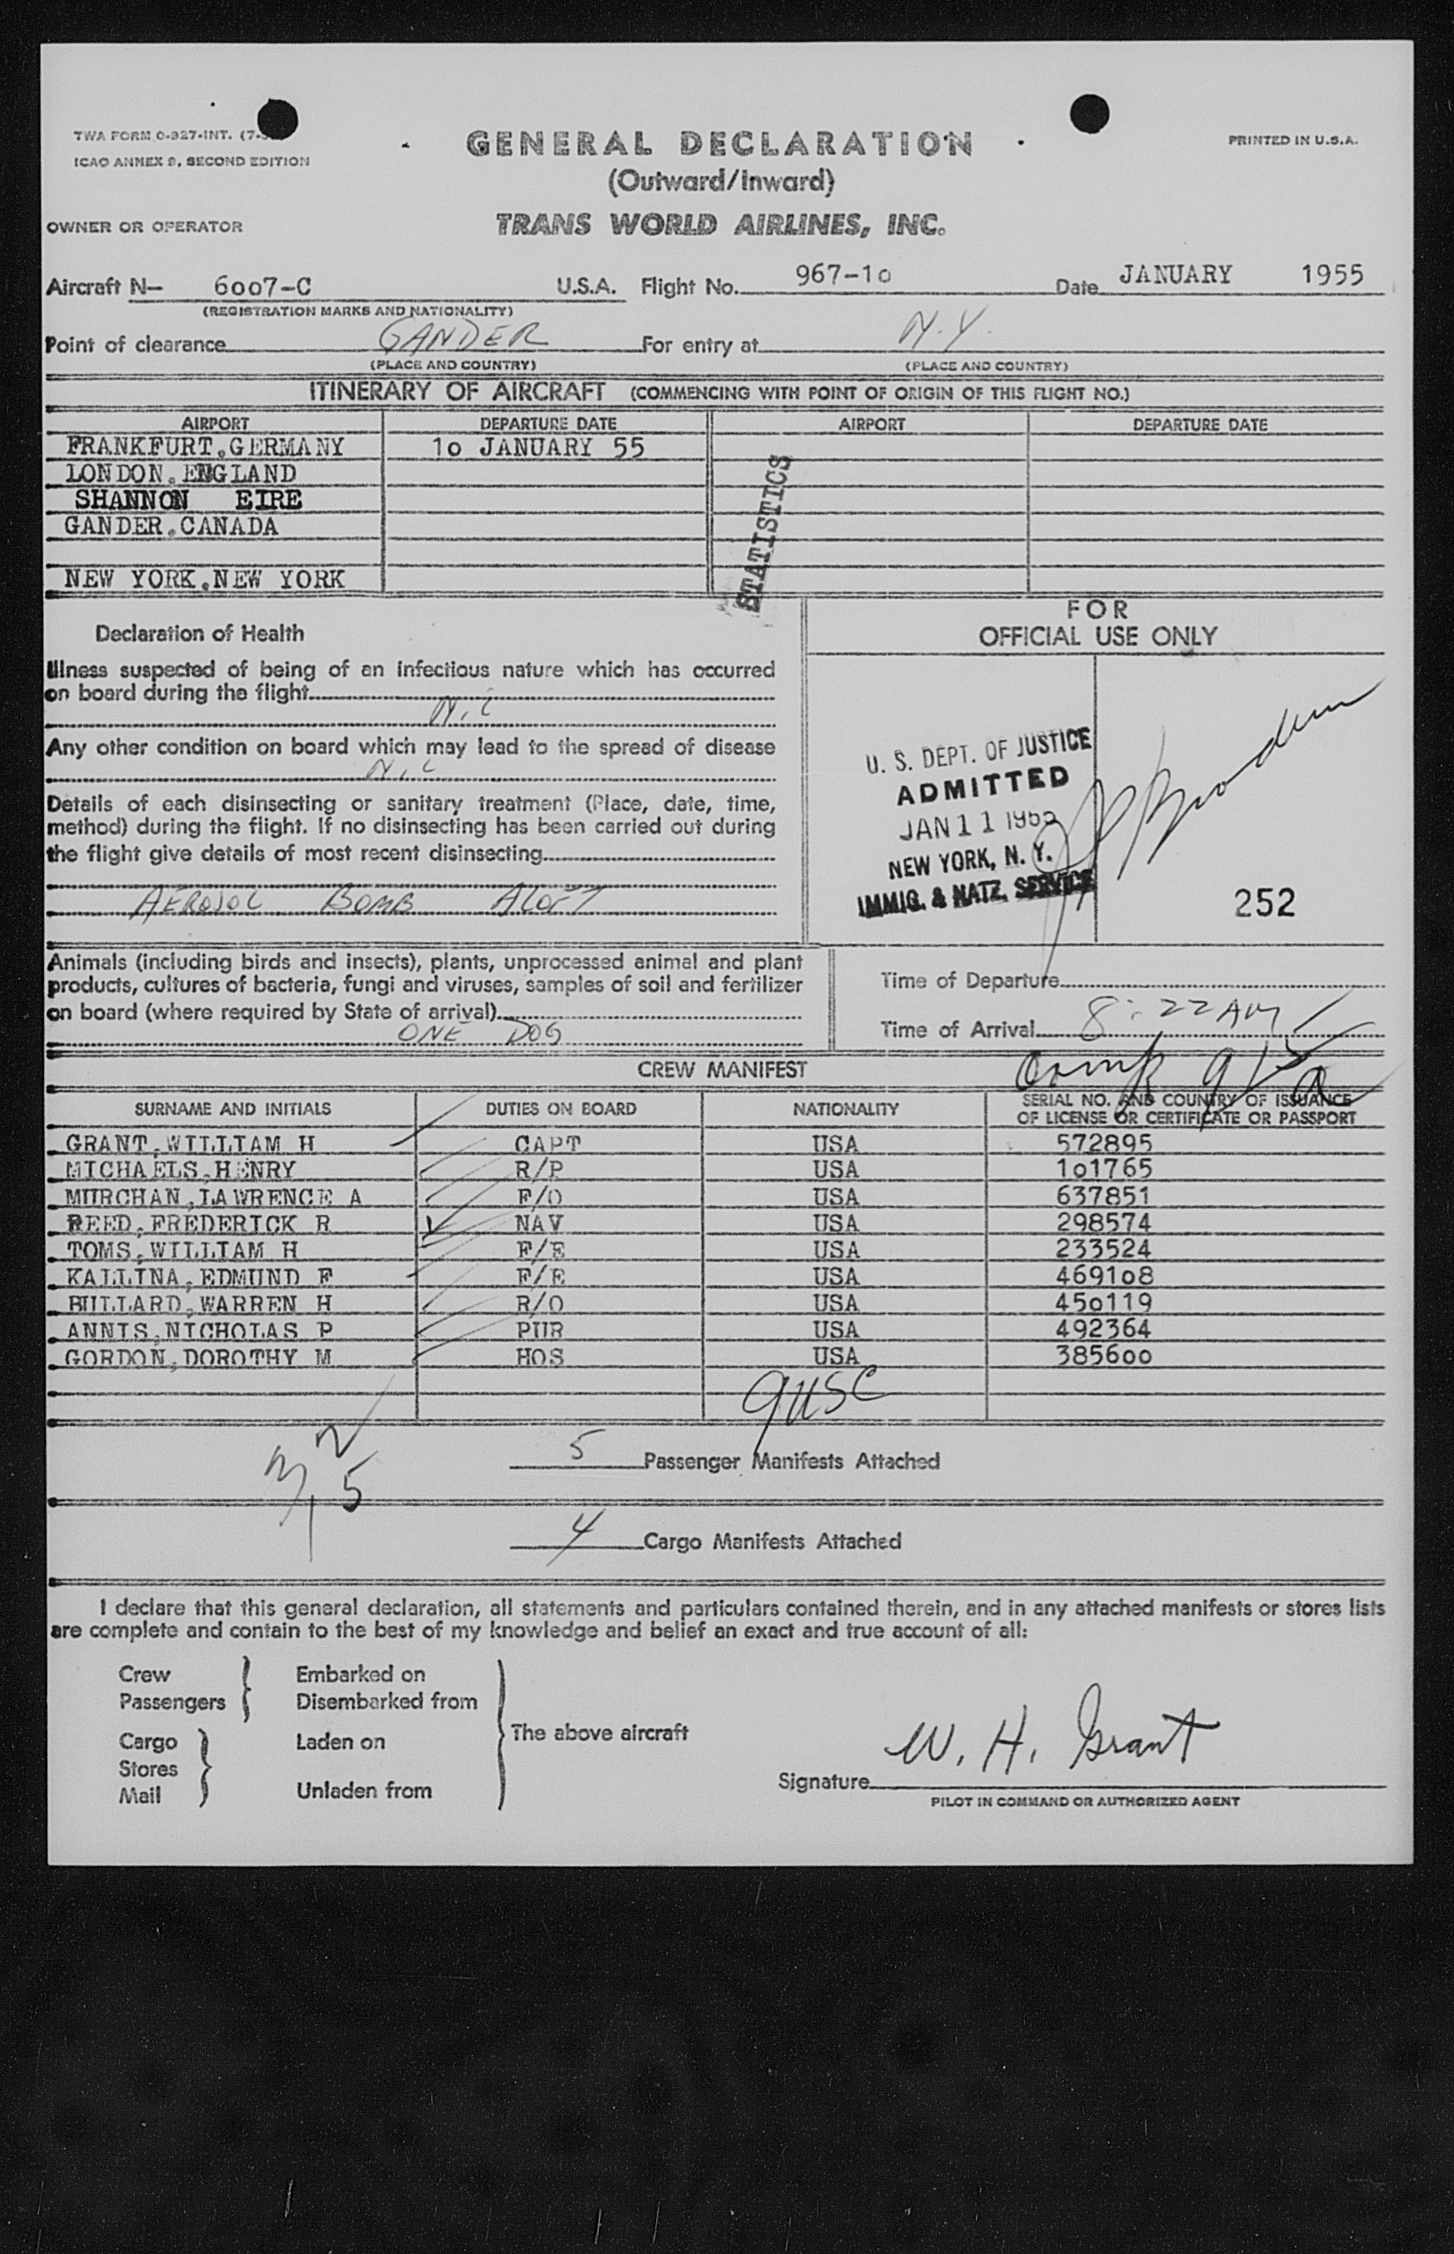 TWA FORM O-927-INT. (7-
ICAO ANNEX 9, SECOND EDITION
GENERAL DECLARATION
(Outward/Inward)
PRINTED IN U.S.A.
OWNER OR OPERATOR
TRANS WORLD AIRLINES, INC.
Aircraft N— 6007-C U.S.A. Flight No. 967-10 Date JANUARY 1955
(REGISTRATION MARKS AND NATIONALITY)
Point of clearance GANDER For entry at N.Y.
(PLACE AND COUNTRY) (PLACE AND COUNTRY)
ITINERARY OF AIRCRAFT (COMMENCING WITH POINT OF ORIGIN OF THIS FLIGHT NO.)
AIRPORT DEPARTURE DATE AIRPORT DEPARTURE DATE
FRANKFURT,GERMANY 10 JANUARY 55
LONDON,ENGLAND
SHANNON EIRE
GANDER,CANADA
NEW YORK,NEW YORK
STATISTICS
Declaration of Health
Illness suspected of being of an infectious nature which has occurred
on board during the flight
Nil
Any other condition on board which may lead to the spread of disease
Nil
Details of each disinsecting or sanitary treatment (Place, date, time,
method) during the flight. If no disinsecting has been carried out during
the flight give details of most recent disinsecting
AEROSOL BOMB ALOFT
FOR
OFFICIAL USE ONLY
U. S. DEPT. OF JUSTICE
ADMITTED
JAN 11 1955
NEW YORK, N. Y.
IMMIG. & NATZ. SERVICE
252
Animals (including birds and insects), plants, unprocessed animal and plant
products, cultures of bacteria, fungi and viruses, samples of soil and fertilizer
on board (where required by State of arrival)
ONE DOG
Time of Departure
Time of Arrival 8:22 AM
CREW MANIFEST
SURNAME AND INITIALS DUTIES ON BOARD NATIONALITY SERIAL NO. AND COUNTRY OF ISSUANCE
OF LICENSE OR CERTIFICATE OR PASSPORT
GRANT,WILLIAM H CAPT USA 572895
MICHAELS,HENRY R/P USA 101765
MURCHAN,LAWRENCE A F/O USA 637851
REED,FREDERICK R NAV USA 298574
TOMS,WILLIAM H F/E USA 233524
KALLINA,EDMUND F F/E USA 469108
BULLARD,WARREN H R/O USA 450119
ANNIS,NICHOLAS P PUR USA 492364
GORDON,DOROTHY M HOS USA 385600
9 USC
5 Passenger Manifests Attached
4 Cargo Manifests Attached
I declare that this general declaration, all statements and particulars contained therein, and in any attached manifests or stores lists
are complete and contain to the best of my knowledge and belief an exact and true account of all:
Crew
Passengers
Embarked on
Disembarked from
Cargo
Stores
Mail
Laden on
Unladen from
The above aircraft
Signature W. H. Grant
PILOT IN COMMAND OR AUTHORIZED AGENT